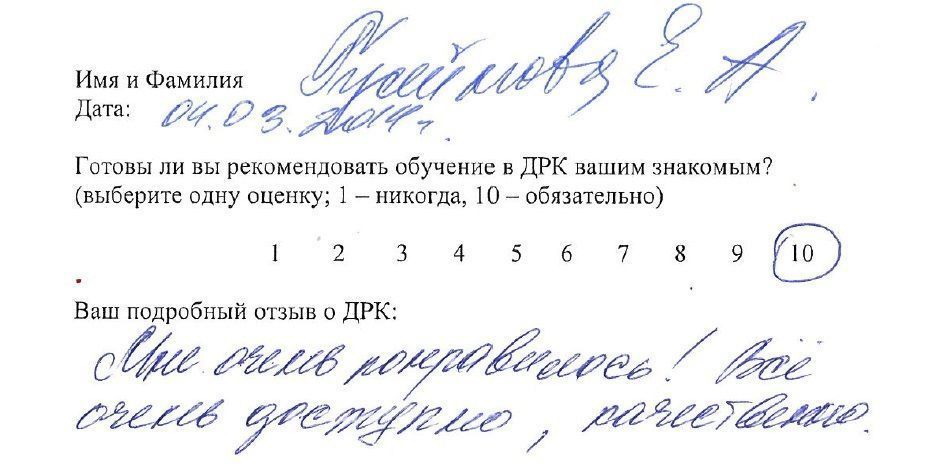 Имя и Фамилия Гусейнова Е. А.
Дата: 04.03.2014г.
Готовы ли вы рекомендовать обучение в ДРК вашим знакомым?
(выберите одну оценку; 1 – никогда, 10 – обязательно)
1 2 3 4 5 6 7 8 9 10
Ваш подробный отзыв о ДРК:
Мне очень понравилось! Всё
очень доступно, качественно.